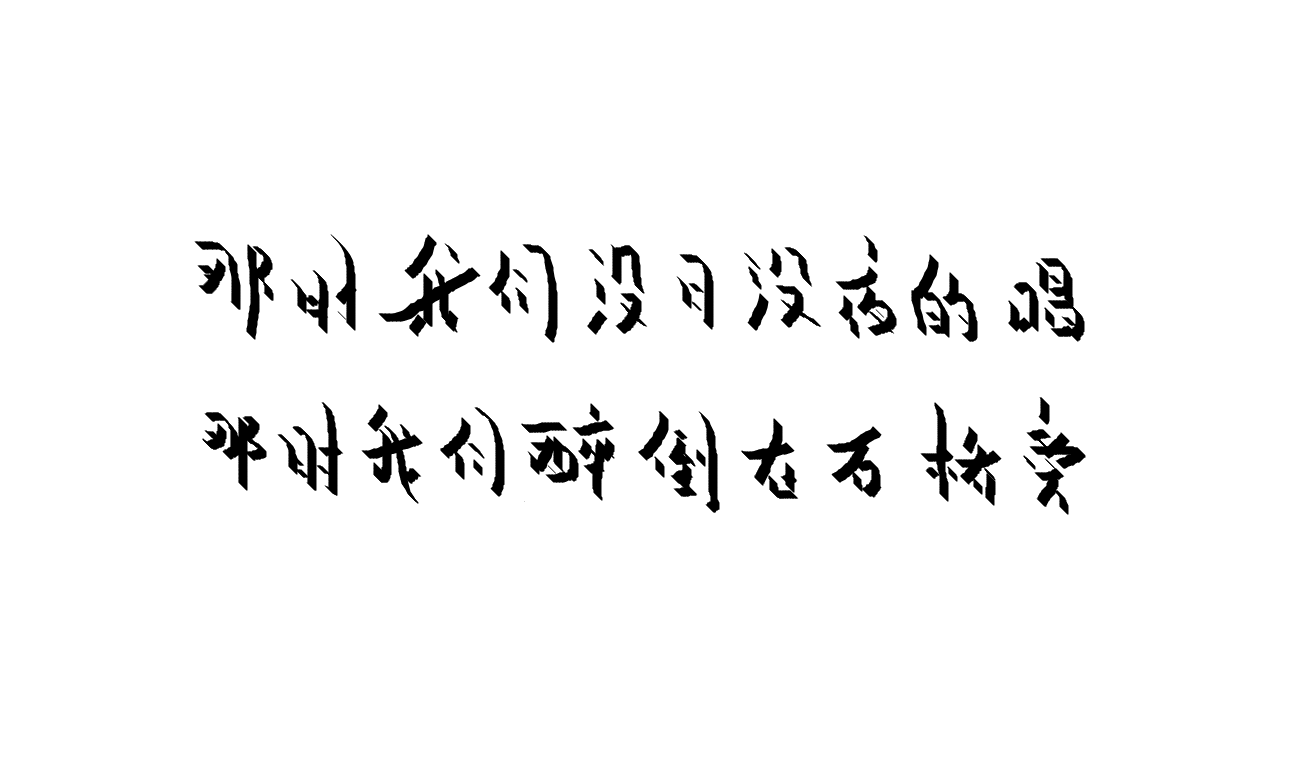 那时我们没日没夜的唱
那时我们醉倒在万格卖